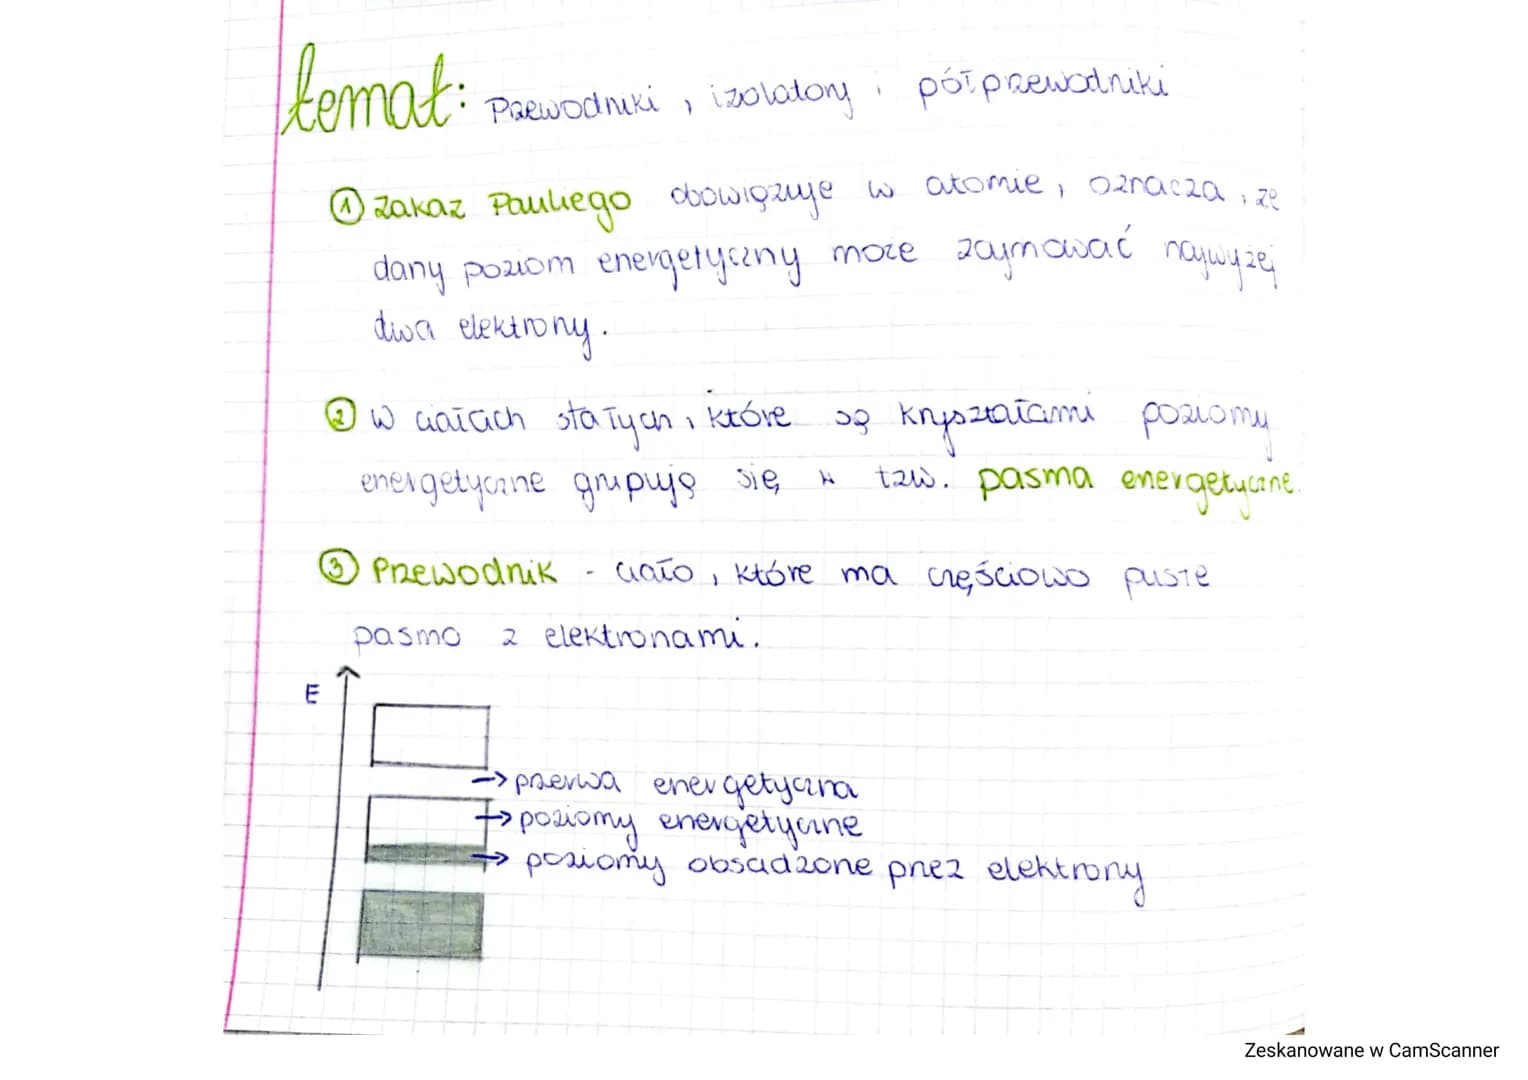 temat: Przewodniki, izolatory i półprzewodniki
① Zakaz Pauliego obowiązuje w atomie, oznacza, że
dany poziom energetyczny może zajmować najwyżej
dwa elektrony.
② W ciałach stałych, które są kryształami poziomy
energetyczne grupują się w tzw. pasma energetyczne.
③ Przewodnik - ciało, które ma częściowo puste
pasmo z elektronami.
E
→ przerwa energetyczna
→ poziomy energetyczne
→ poziomy obsadzone przez elektrony
Zeskanowane w CamScanner